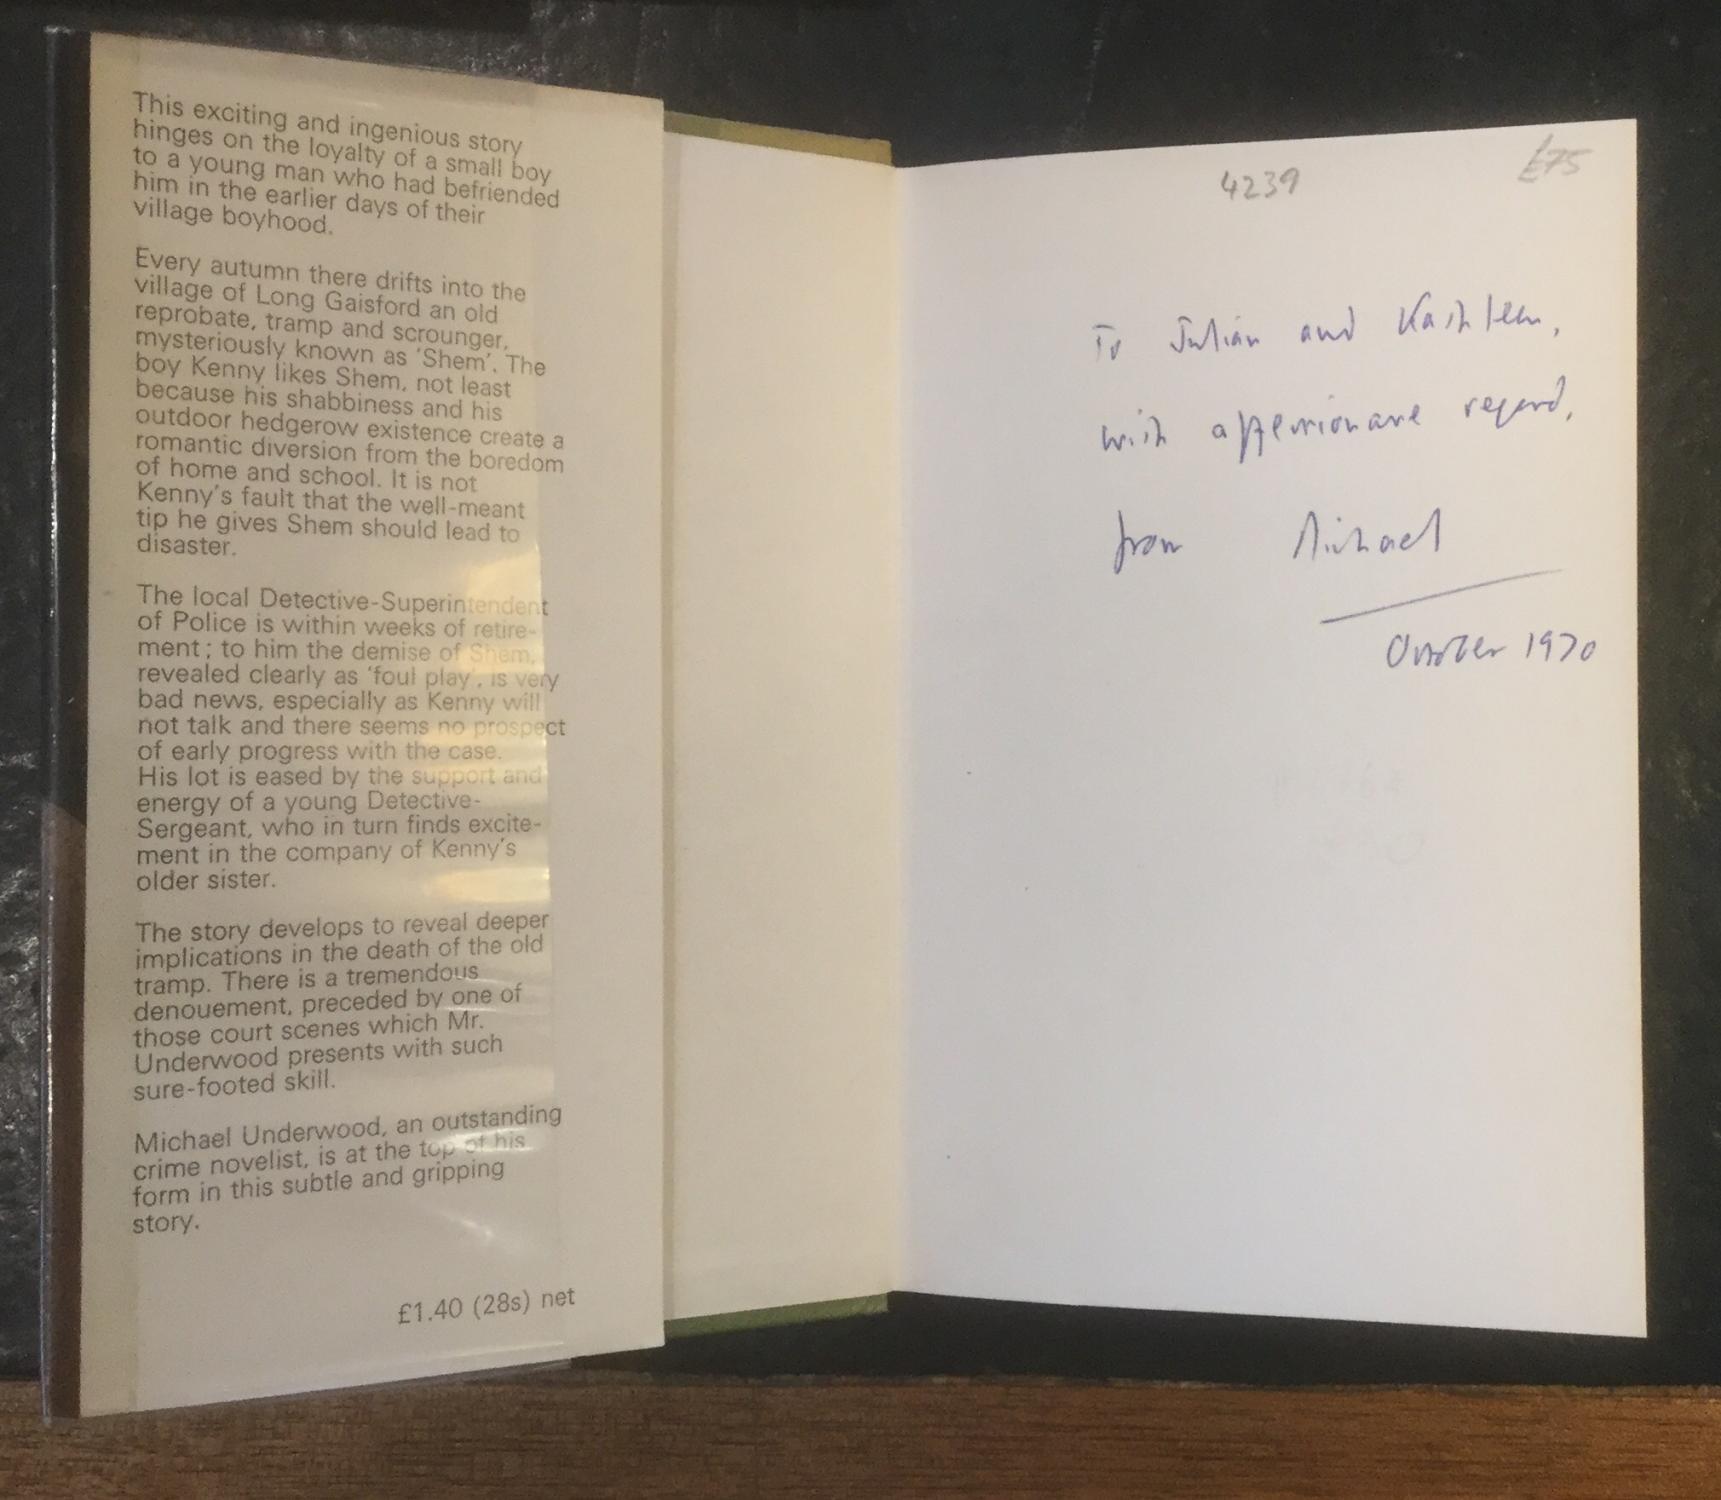 This exciting and ingenious story
hinges on the loyalty of a small boy
to a young man who had befriended
him in the earlier days of their
village boyhood.
Every autumn there drifts into the
village of Long Gaisford an old
reprobate, tramp and scrounger,
mysteriously known as ‘Shem’. The
boy Kenny likes Shem, not least
because his shabbiness and his
outdoor hedgerow existence create a
romantic diversion from the boredom
of home and school. It is not
Kenny’s fault that the well-meant
tip he gives Shem should lead to
disaster.
The local Detective-Superintendent
of Police is within weeks of retire-
ment; to him the demise of Shem,
revealed clearly as ‘foul play’, is very
bad news, especially as Kenny will
not talk and there seems no prospect
of early progress with the case.
His lot is eased by the support and
energy of a young Detective-
Sergeant, who in turn finds excite-
ment in the company of Kenny’s
older sister.
The story develops to reveal deeper
implications in the death of the old
tramp. There is a tremendous
denouement, preceded by one of
those court scenes which Mr.
Underwood presents with such
sure-footed skill.
Michael Underwood, an outstanding
crime novelist, is at the top of his
form in this subtle and gripping
story.
£1.40 (28s) net
4239
£75
To Julian and Kathleen,
with affectionate regard,
from Michael
October 1970